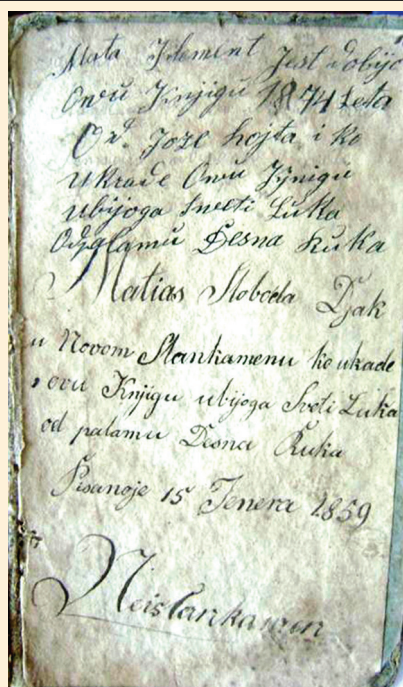 Mata Klement Jest dobijo
Owu Knjigu 1874 Leta
Od. Joze hojta i ko
ukrade Owu Kjnigu
ubijoga Sweti Luka
Odpalamu Desna Ruka
Matias Sloboda Djak
u Novom Slankamenu ko ukade
ovu Knjigu ubijoga Sveti Luka
od palamu Desna Ruka
Pisanoje 15 Jenera 1859
Neislankamen